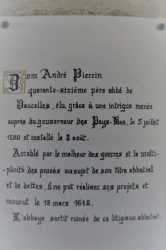 Dom André Pierrin
quarante-sixième père abbé de
Vaucelles, élu, grâce à une intrigue menée
auprès du gouverneur des Pays-Bas, le 5 juillet
et installé le 8 août.
Accablé par le malheur des guerres et le multi-
plicité des procès au sujet de son titre abbatial
et de dettes, il ne put réaliser ses projets et
mourut le 18 mars 1642.
L'abbaye sortit ruinée de ce litigieux abbatiat.